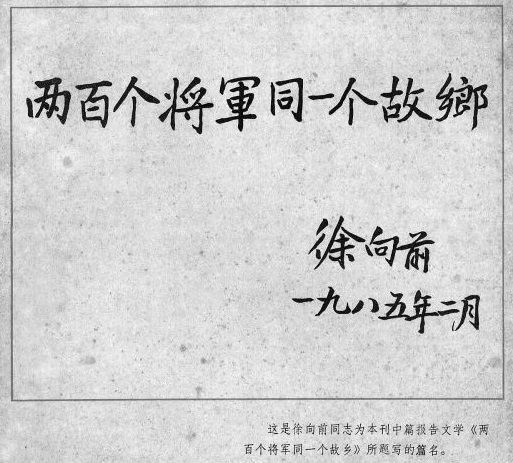 两百个将軍同一个故鄉
徐向前
一九八五年二月
这是徐向前同志为本刊中篇报告文学《两
百个将军同一个故乡》所题写的篇名。